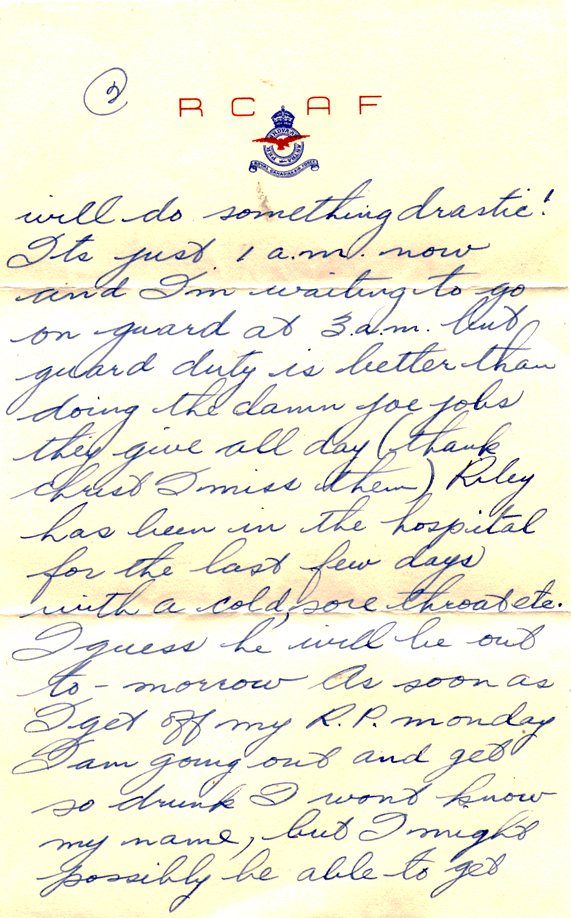 2
R C A F
ROYAL CANADIAN AIR FORCE
will do something drastic!
Its just 1 a.m. now
and I'm waiting to go
on guard at 3.a.m. but
guard duty is better than
doing the damn joe jobs
they give all day (thank
christ I miss them) Riley
has been in the hospital
for the last few days
with a cold, sore throat etc.
I guess he will be out
to-morrow As soon as
I get off my R.P. monday
I am going out and get
so drunk I wont know
my name, but I might
possibly be able to get